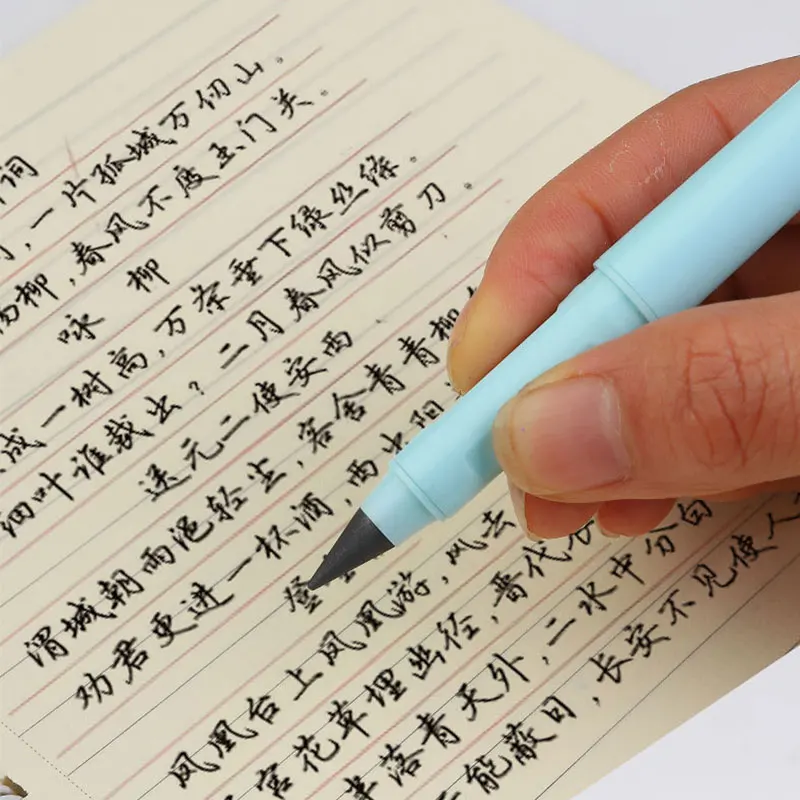 词
，一片孤城万仞山。
柳，春风不度玉门关。
咏 柳
成一树高，万条垂下绿丝绦。
细叶谁裁出？二月春风似剪刀。
送元二使安西
渭城朝雨浥轻尘，客舍青青柳
劝君更进一杯酒，西出阳
登
凤凰台上凤凰游，凤去
宫花草埋幽径，晋代
半落青天外，二水中分白
能蔽日，长安不见使人